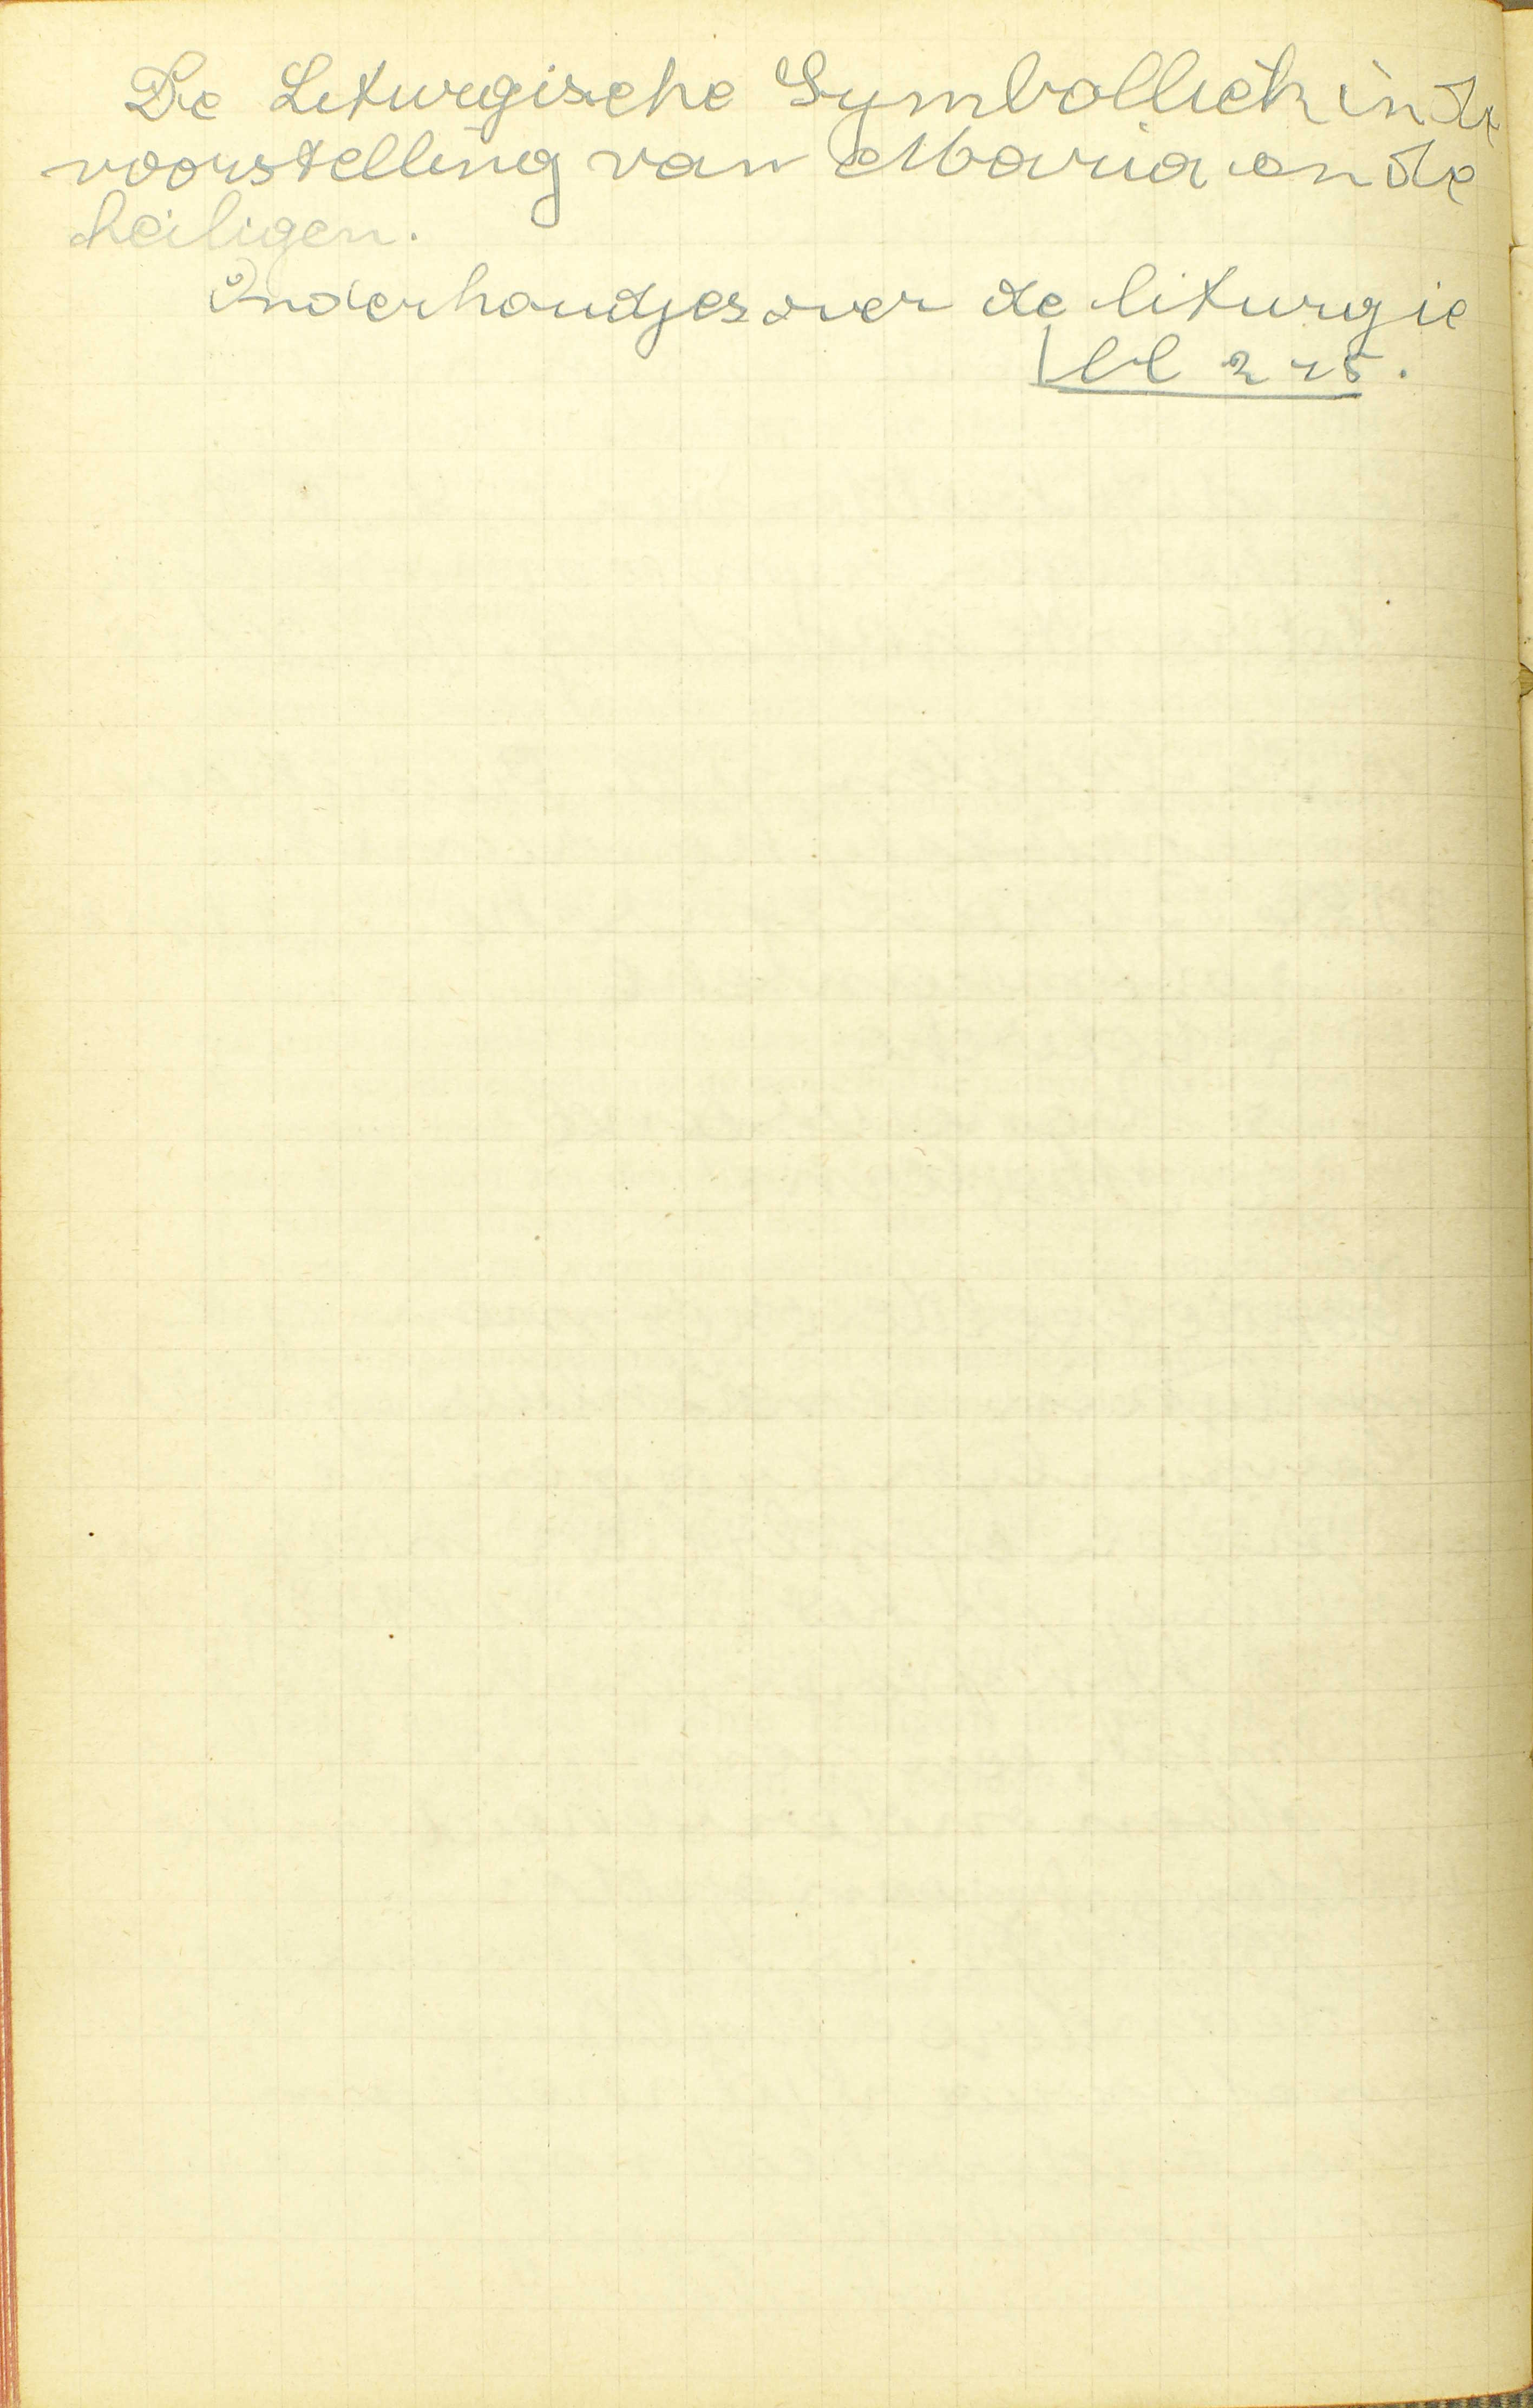 De Liturgische Symbolliek in de
voorstelling van Maria en de
heiligen.
Onderhoudjes over de liturgie
bl 215.